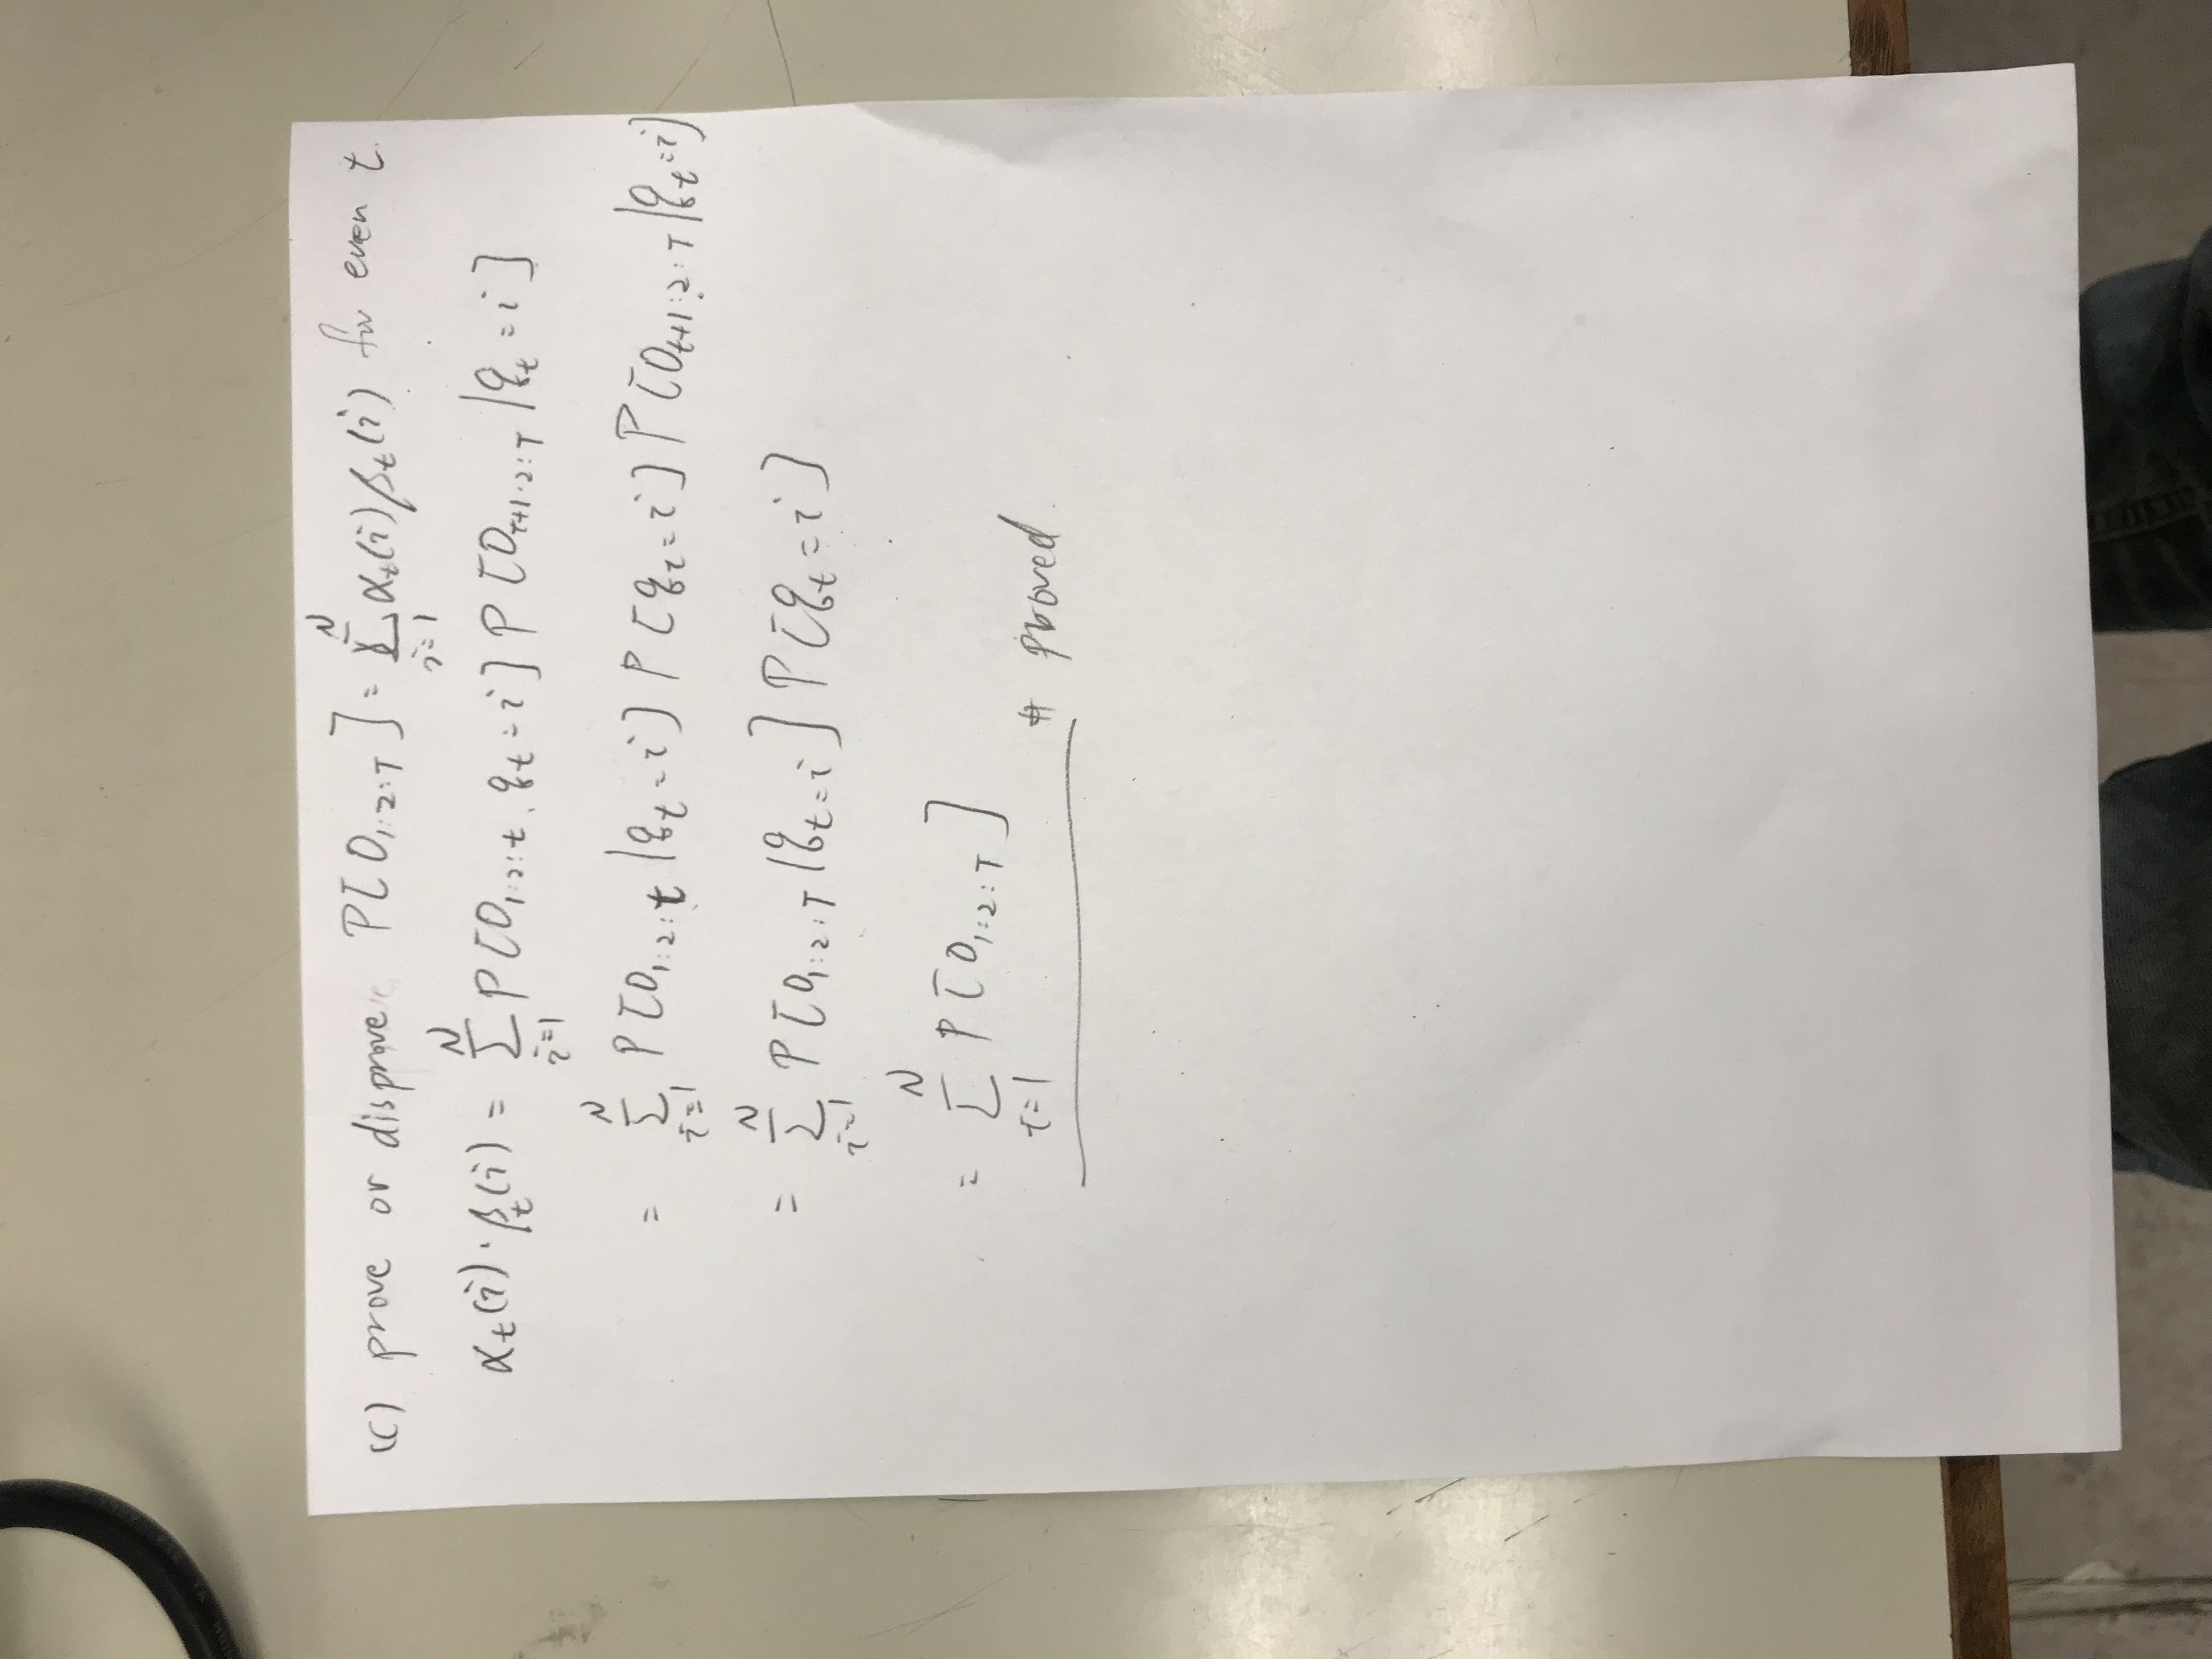 (c) prove or disprove P[O_{1:2:T}] = \sum_{i=1}^{N} α_t(i) β_t(i) for even t.
α_t(i) · β_t(i) = \sum_{i=1}^{N} P[O_{1:2:t}, q_t = i] P[O_{t+1:2:T} | q_t = i]
= \sum_{i=1}^{N} P[O_{1:2:t} | q_t = i] P[q_t = i] P[O_{t+1:2:T} | q_t = i]
= \sum_{i=1}^{N} P[O_{1:2:T} | q_t = i] P[q_t = i]
= \sum_{i=1}^{N} P[O_{1:2:T}]
# proved.